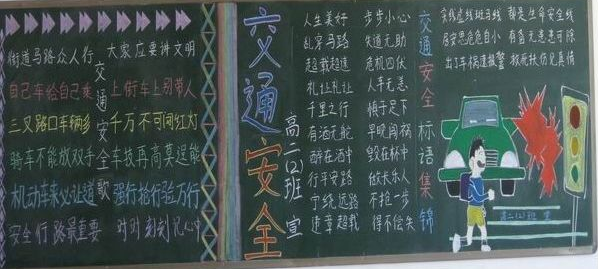 街道马路众人行 大家应要讲文明
自己车给自己乘 上街车上别带人
三叉路口车辆多 千万不可闯红灯
骑车不能放双手 车技再高莫逞能
机动车来必让道 强行抢行险万行
安全行路最重要 时时刻刻记心中
交通安全歌
交通安全
高二(2)班 宣
人生美好 步步小心
乱穿马路 失道无助
超载超速 危机四伏
礼让礼让 人车无恙
千里之行 慎于足下
有酒 舵 早晚闯祸
醉在酒中 毁在杯中
行平安路 做长乐人
宁绕远路 不抢一步
违章超载 得不偿失
交通安全标语集锦
实线虚线斑马线 都是生命安全线
居安思危危自小 有备无患患可除
出了车祸速报警 救死扶伤见真情
高二(2)班 宣